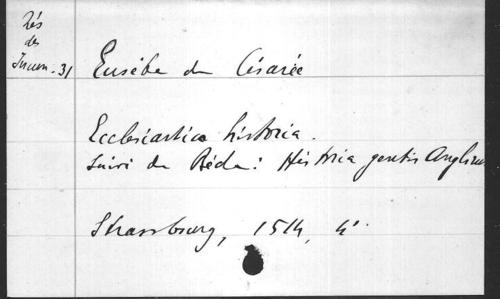 Rés
des
Incun. 31
Eusèbe de Césarée
Ecclesiastica historia.
suivi de Béda: Historia gentis Anglicu
Strassburg, 1514, 4°.